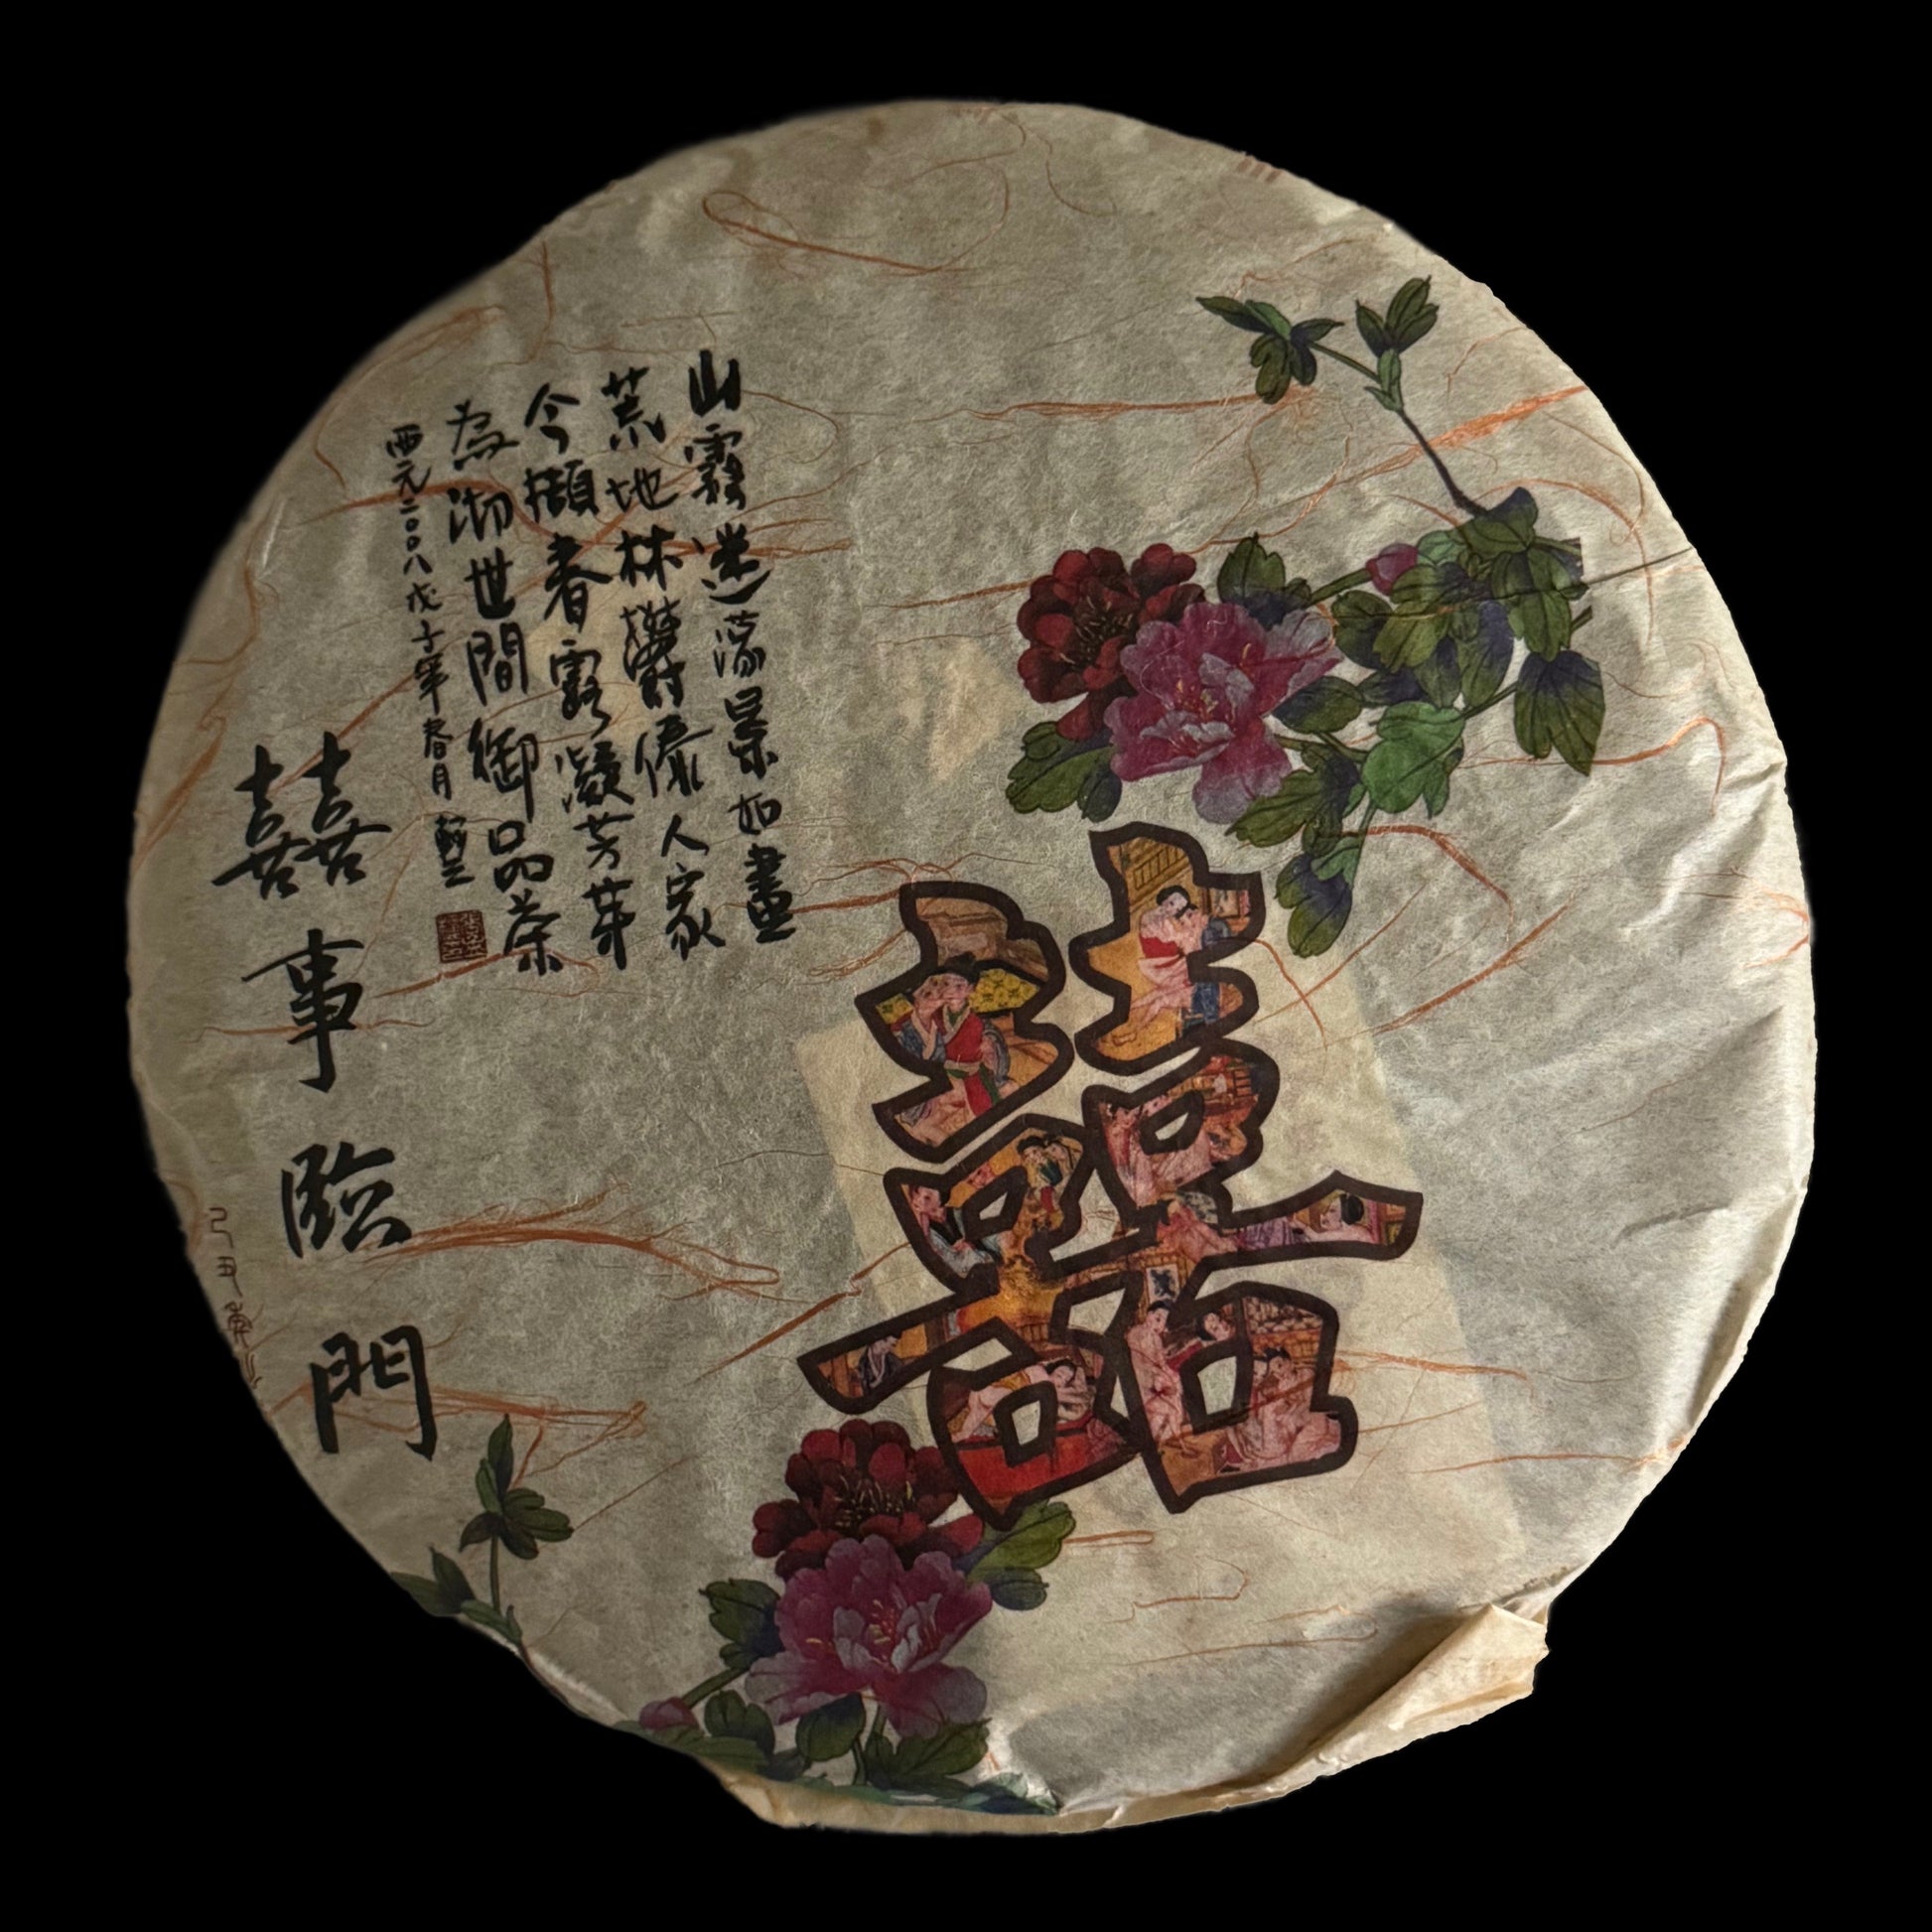 囍
山霧迷蕩景如畫
荒地林欝傣人家
今擷春露凝芳芽
為沏世間御品茶
西元二〇〇八戊子年春月
囍事臨門
己丑